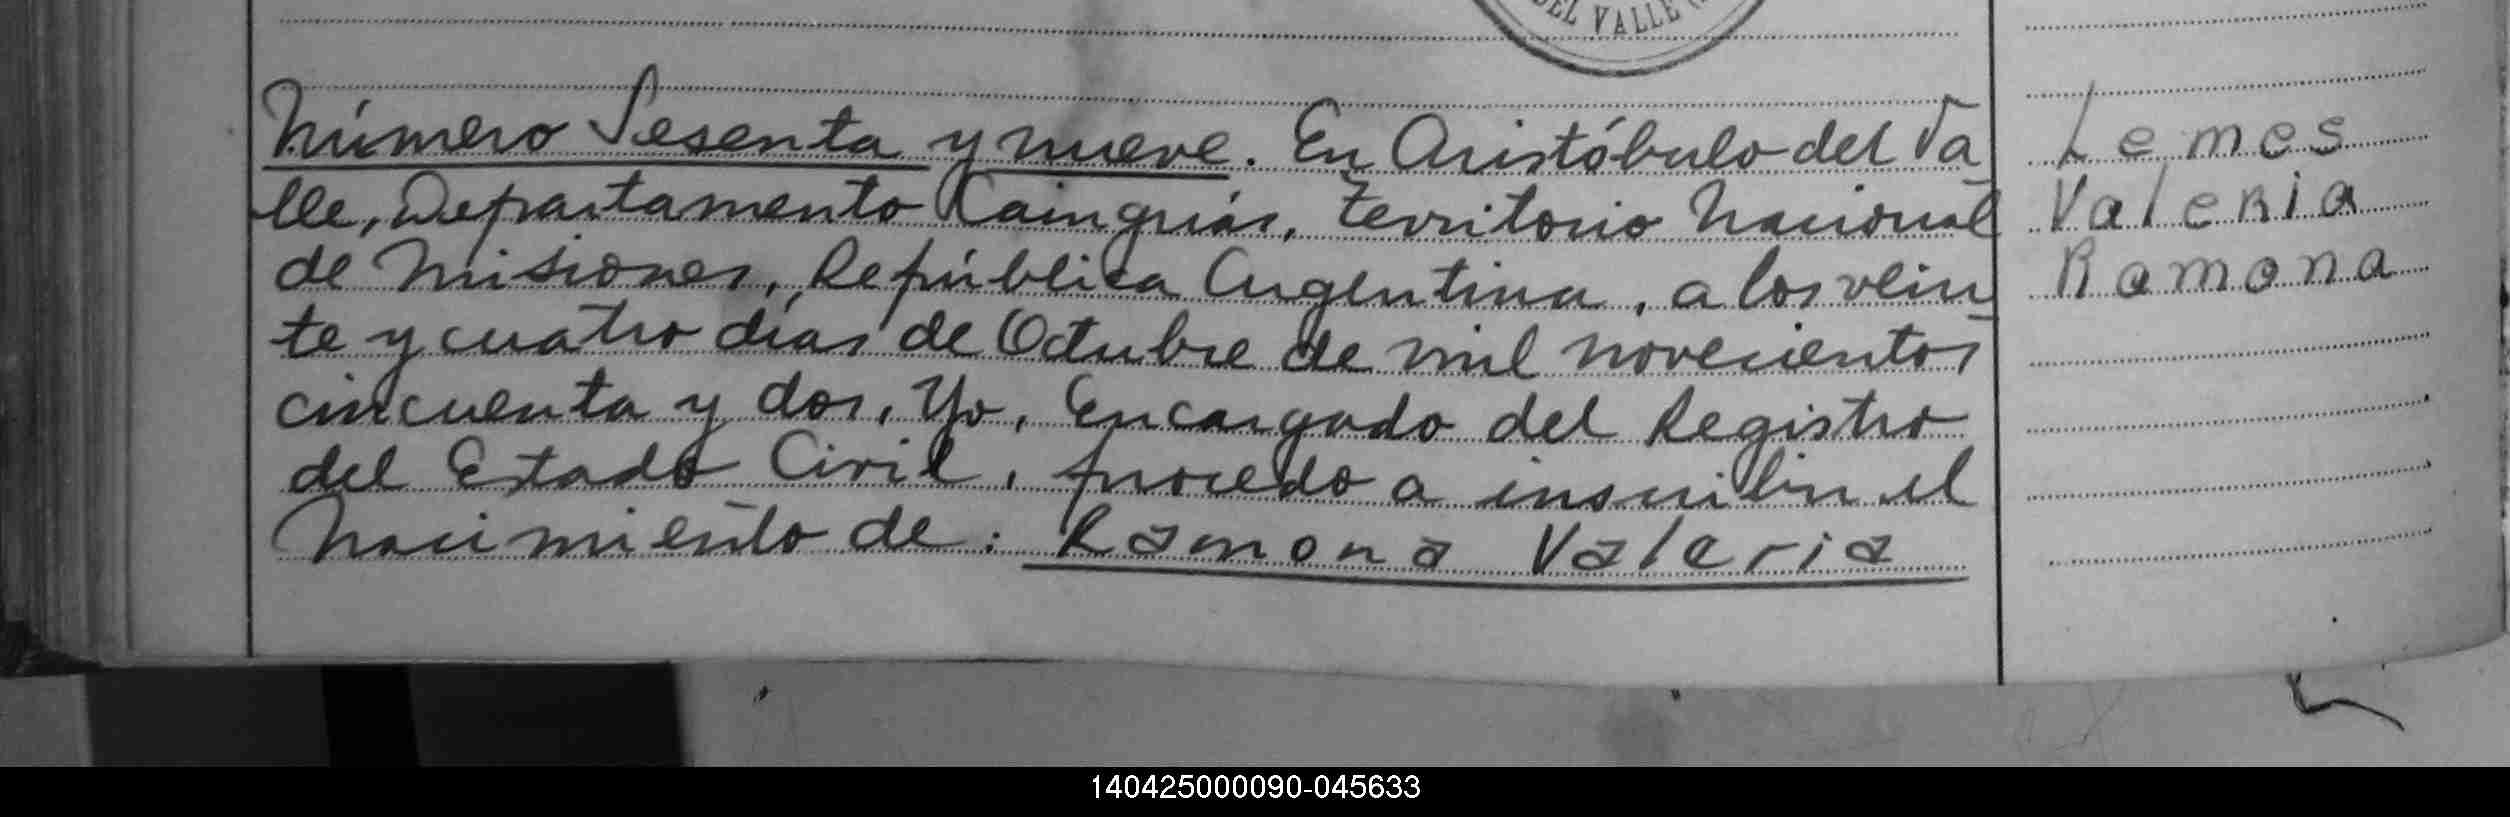 DEL VALLE
Número Sesenta y nueve. En Aristóbulo del Va
lle, Departamento Cainguás, Territorio Nacional
de Misiones, República Argentina, a los vein
te y cuatro días de Octubre de mil novecientos
cincuenta y dos, Yo, Encargado del Registro
del Estado Civil, procedo a inscribir el
Nacimiento de: Ramona Valeria
Lemes
Valeria
Ramona
140425000090-045633